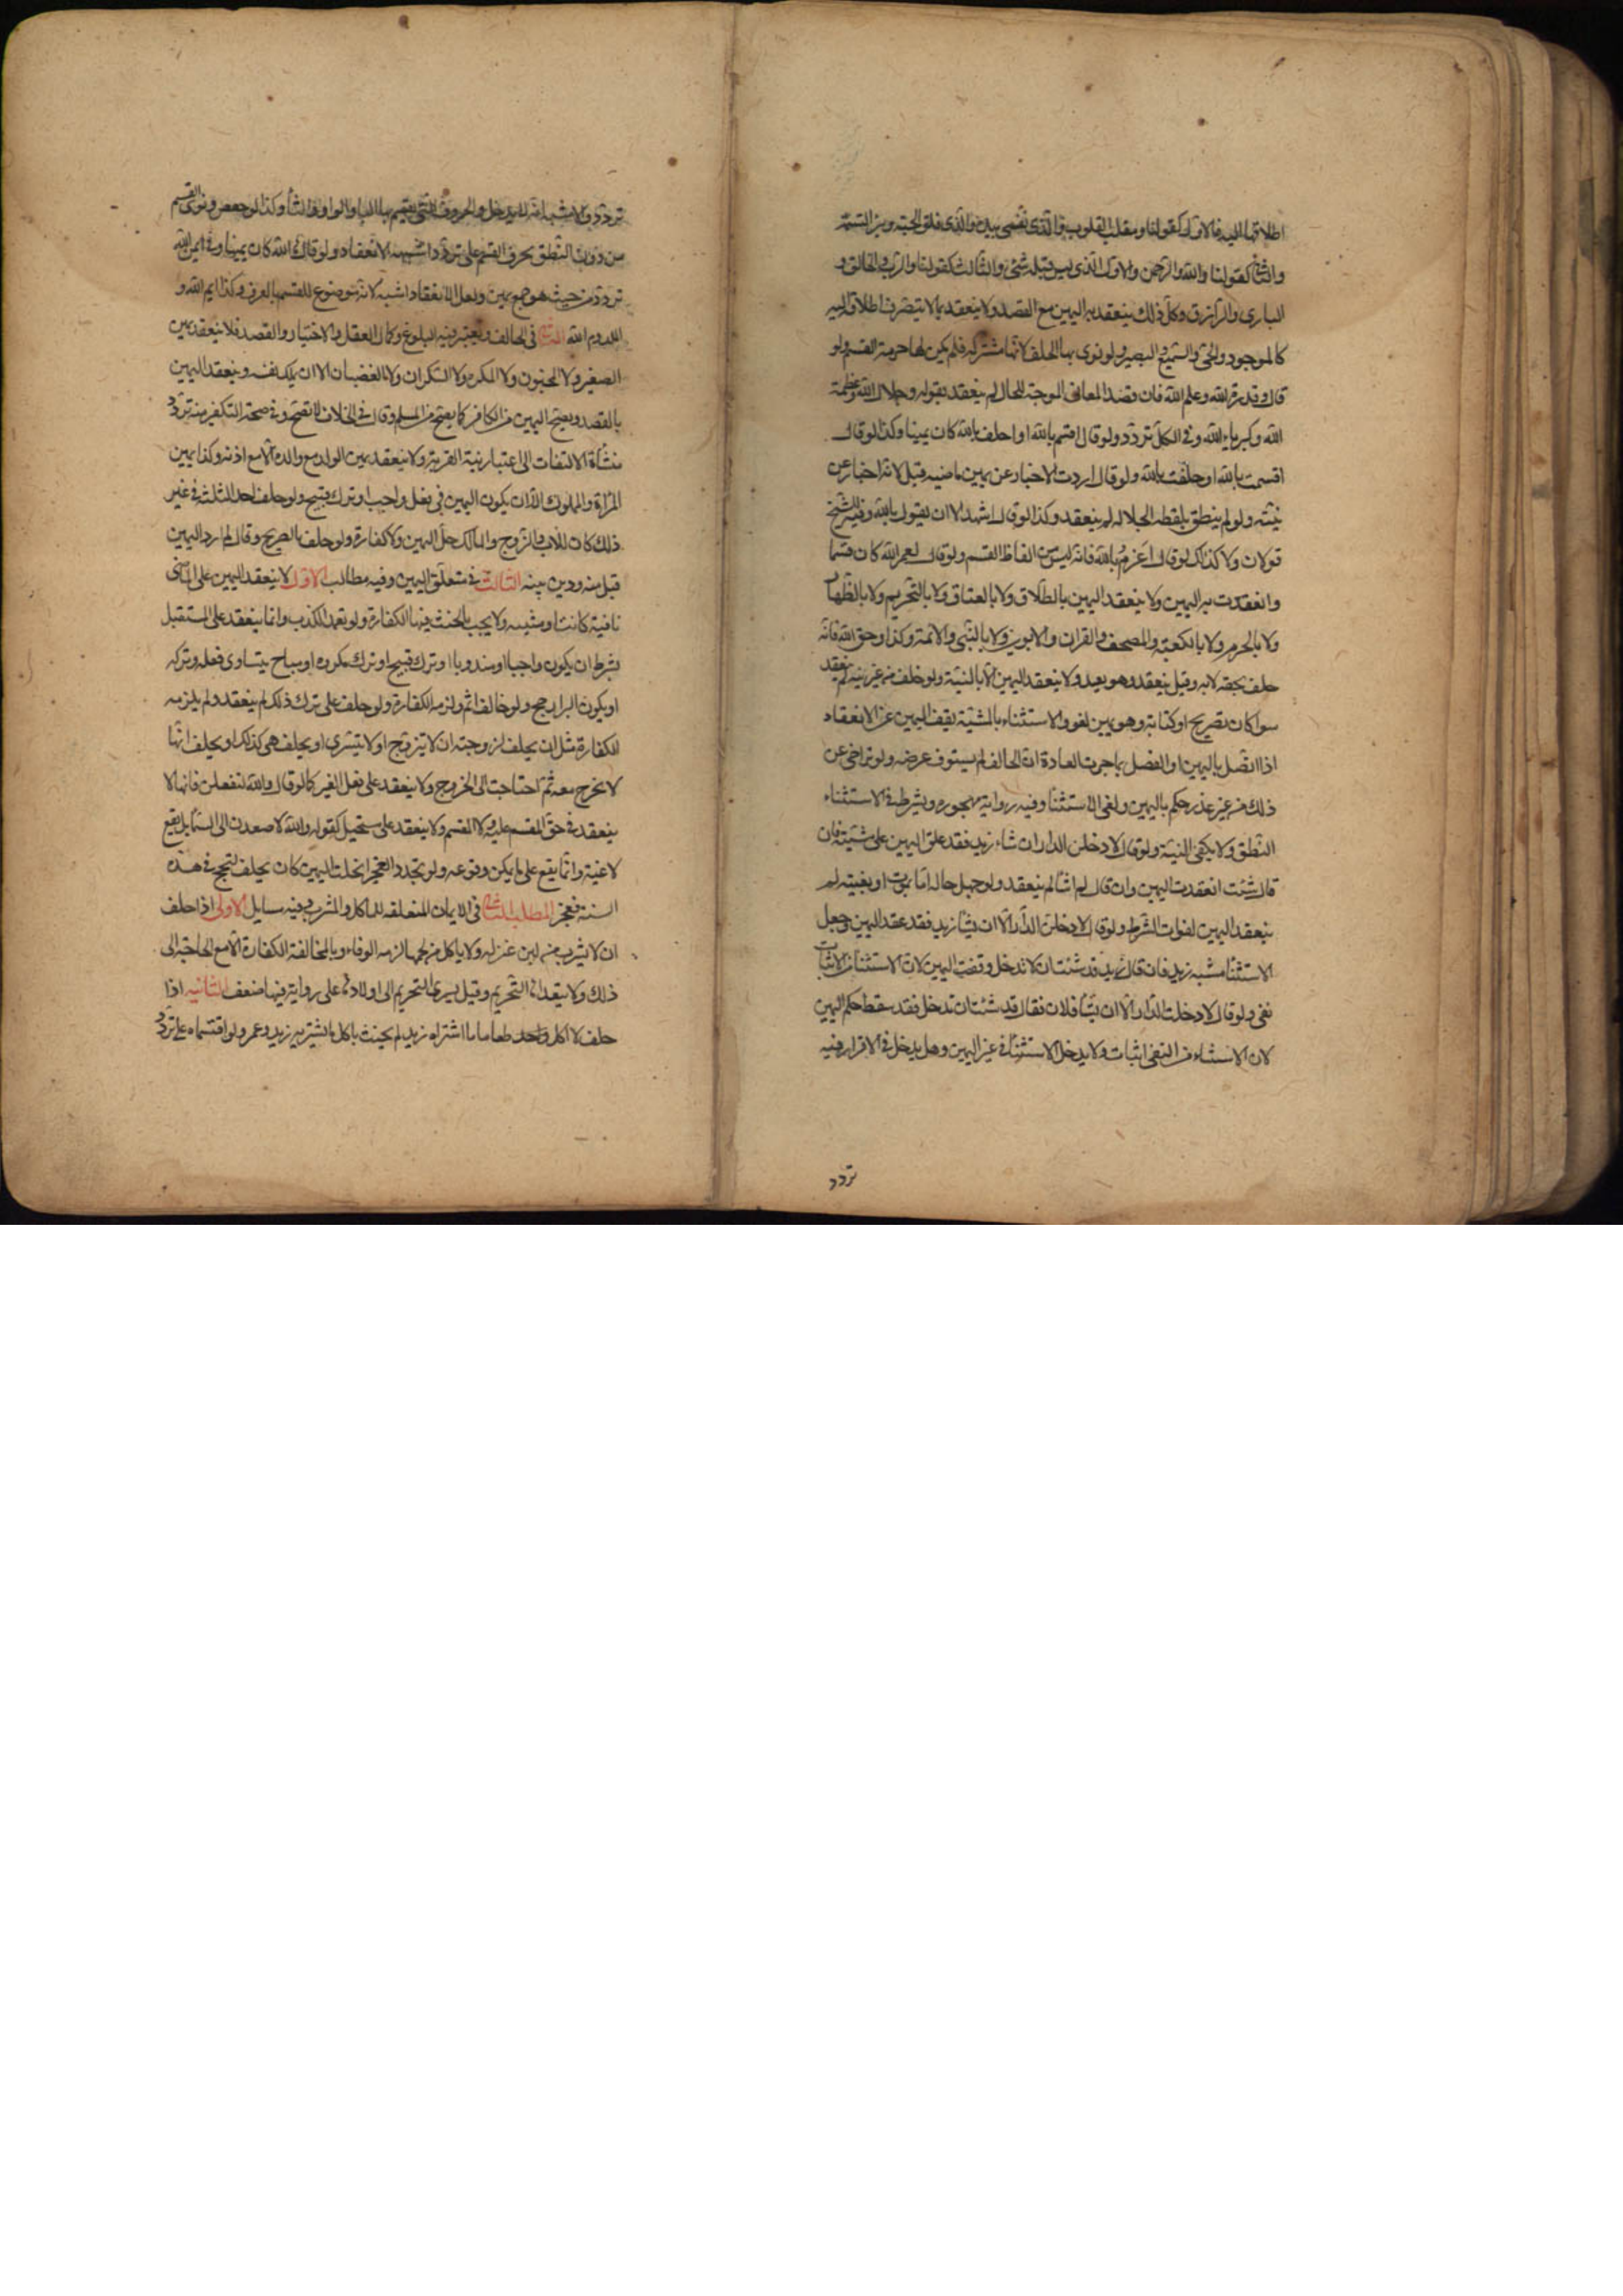 اطلاقها اليه فالاول كقولنا ومقلب القلوب والذي نفسي بيده والذي فلق الحبة وبرء النسمة
والثاني كقولنا والله والرحمن والاول الذي ليس قبله شئ والثالث كقولنا والرب والخالق و
الباري والرازق وكل ذلك ينعقد به اليمين مع القصد ولا ينعقد بما لا ينصرف اطلاقه اليه
كالموجود والحي والسميع والبصير ولو نوى بها الحلف لانها مشتركه فلم يكن لها حرمة القسم ولو
قال وقدرة الله وعلم الله فان قصد المعاني الموجبة للحال لم ينعقد بقوله وجلال الله وعظمة
الله وكبرياء الله وفي الكل تردد ولو قال اقسم بالله او احلف بالله كان يمينا وكذا لو قال
اقسمت بالله او حلفت بالله ولو قال اردت الاخبار عن يمين ماضيه قبل لانه اخبار عن
نيته ولو لم ينطق بلفظه الجلاله لم ينعقد وكذا لو قال اشهد الا ان يقول بالله وفيه للشيخ
قولان ولا كذلك لو قال اعزم بالله فانه ليس من الفاظ القسم ولو قال لعمر الله كان قسما
وانعقدت به اليمين ولا ينعقد اليمين بالطلاق ولا بالعتاق ولا بالتحريم ولا بالظهار
ولا بالحرم ولا بالكعبة والمصحف والقران والابوين ولا بالنبي والائمة وكذا وحق الله فانه
حلف بحقه لا به وقيل ينعقد وهو بعيد ولا ينعقد اليمين الا بالنية ولو حلف من غير نية لم ينعقد
سوا كان بصريح او كناية وهو يمين لغو والاستثناء بالمشية يقف اليمين عن الانعقاد
اذا اتصل باليمين او انفصل بما جرت العادة ان الحالف لم يستوف غرضه ولو تراخى عن
ذلك من غير عذر حكم باليمين ولغى الاستثنا وفيه رواية مهجوره ويشرط في الاستثناء
النطق ولا يكفي النية ولو قال لادخلن الدار ان شاء زيد فقد علق اليمين على مشيته فان
قال شئت انعقدت اليمين وان قال لم اشا لم ينعقد ولو جهل حاله اما بموت او بغيبته لم
ينعقد اليمين لفوات الشرط ولو قال لادخلن الدار الا ان يشا زيد فقد عقد اليمين وجعل
الاستثنا مشيه زيد فان قال زيد قد شئت ان لا تدخل وقفت اليمين لان الاستثنا من الاثبات
نفي ولو قال لا دخلت الدار الا ان يشا فلان فقال قد شئت ان تدخل فقد سقط حكم اليمين
لان الاستثناء من النفي اثبات ولا يدخل الاستثنا في غير اليمين وهل يدخل في الاقرار فيه
تردد
تردد والاشبه انه لا يدخل والحروف التي يقسم بها البا والواو والتا وكذا لو خفض ونوى القسم
من دون النطق بحرف القسم على تردد اشبهه الانعقاد ولو قال ها الله كان يمينا وفي ايمن الله
تردد من حيث هو جمع يمين ولعل الانعقاد اشبه لانه موضوع للقسم بالعرف وكذا ايم الله و
الثاني في الحالف ويعتبر فيه البلوغ وكمال العقل والاختيار والقصد فلا ينعقد يمين
الصغير ولا المجنون ولا المكره ولا السكران ولا الغضبان الا ان يملك نفسه وينعقد اليمين
بالقصد ويصح اليمين من الكافر كما يصح من المسلم وقال في الخلاف لا تصح وفي صحة التكفير منه تردد
منشاة الالتفات الى اعتبار نية القربة ولا ينعقد يمين الولد مع والده الا مع اذنه وكذا يمين
المراة والمملوك الا ان يكون اليمين في فعل واجب او ترك قبيح ولو حلف احد الثلثة في غير
ذلك كان للاب والزوج والمالك حل اليمين ولا كفارة ولو حلف بالصريح وقال لم ارد اليمين
قبل منه ودين بنيته الثالث في متعلق اليمين وفيه مطالب الاول لا ينعقد اليمين على الماضي
نافية كانت او مثبته ولا يجب بالحنث فيها الكفارة ولو تعمد الكذب وانما ينعقد على المستقبل
بشرط ان يكون واجبا او مندوبا او ترك قبيح او ترك مكروه او مباح يتساوى فعله وتركه
او يكون البر ارجح ولو خالف اثم ولزمه الكفارة ولو حلف على ترك ذلك لم ينعقد ولم يلزمه
الكفارة مثل ان يحلف لزوجته ان لا يتزوج او لا يتسرى او يحلف هي كذلك او يحلف انها
لا تخرج معه ثم احتاجت الى الخروج ولا ينعقد على فعل الغير كما لو قال والله لتفعلن فانها لا
ينعقد في حق المقسم عليه ولا المقسم ولا ينعقد على مستحيل كقوله والله لاصعدن الى السما بل يقع
لاغية وانما يقع على ما يمكن وقوعه ولو تجدد العجز انحلت اليمين كان يحلف لتحج في هذه
السنة فعجز المطلب الثاني في الايمان المتعلقه بالماكل والمشرب وفيه مسايل الاولى اذا حلف
ان لا يشرب من لبن عنز له ولا ياكل من لحمها لزمه الوفاء وبالمخالفة الكفارة الا مع الحاجة الى
ذلك ولا يتعداها التحريم وقيل يسري التحريم الى اولادها على رواية فيها ضعف الثانيه اذا
حلف لا اكل واحد طعاما ما اشتراه زيد لم يحنث باكل ما يشتريه زيد وعمرو ولو اقتسماه على تردد